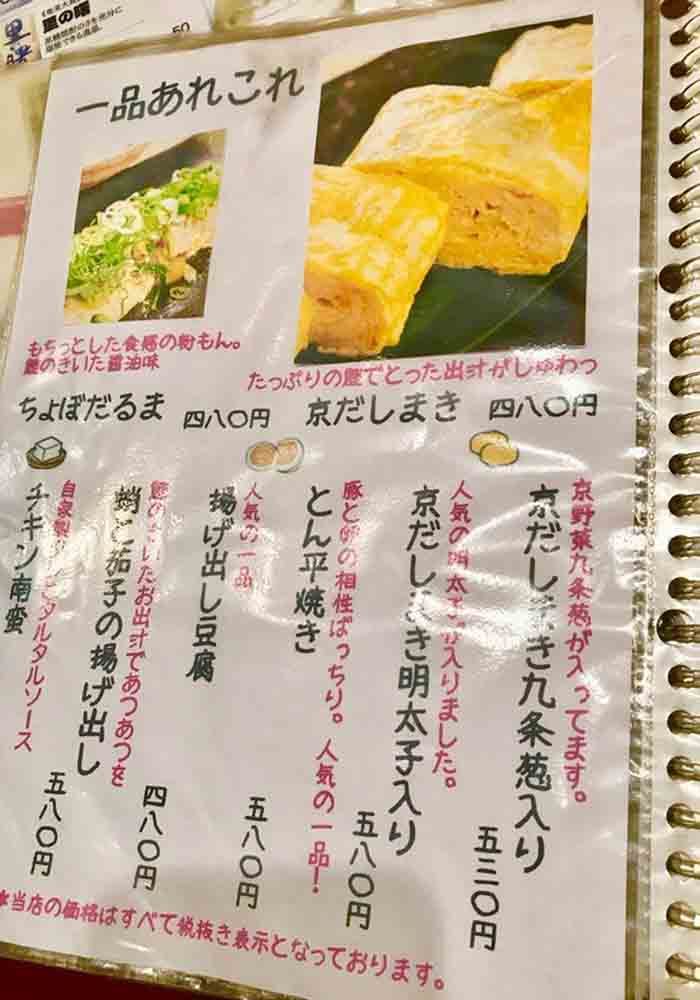 黒糖焼酎のうまさを充分に
堪能できる逸品。
50
一品あれこれ
もちっとした食感の粉もん。
鰹のきいた醤油味
ちょぼだるま 四八〇円
たっぷりの鰹でとった出汁がしゅわっ
京だしまき 四八〇円
京野菜九条葱が入ってます。
京だしまき九条葱入り
五三〇円
人気の明太子が入りました。
京だしまき明太子入り
五八〇円
豚と卵の相性ばっちり。人気の一品!
とん平焼き
五八〇円
人気の一品
揚げ出し豆腐
四八〇円
鰹のきいたお出汁であつあつを
蛸と茄子の揚げ出し
五八〇円
自家製 タルタルソース
チキン南蛮
*当店の価格はすべて税抜き表示となっております。